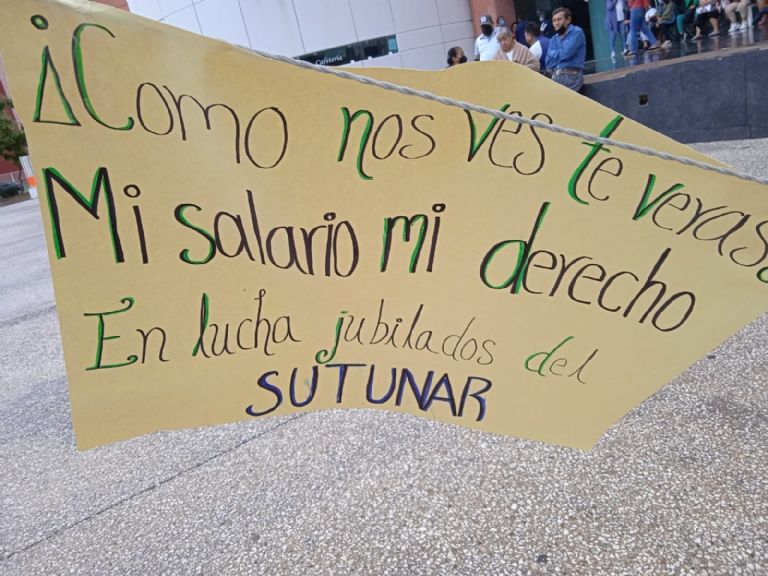 Cafetería
¡Como nos ves te veras
Mi salario mi derecho
En lucha jubilados del
SUTUNAR